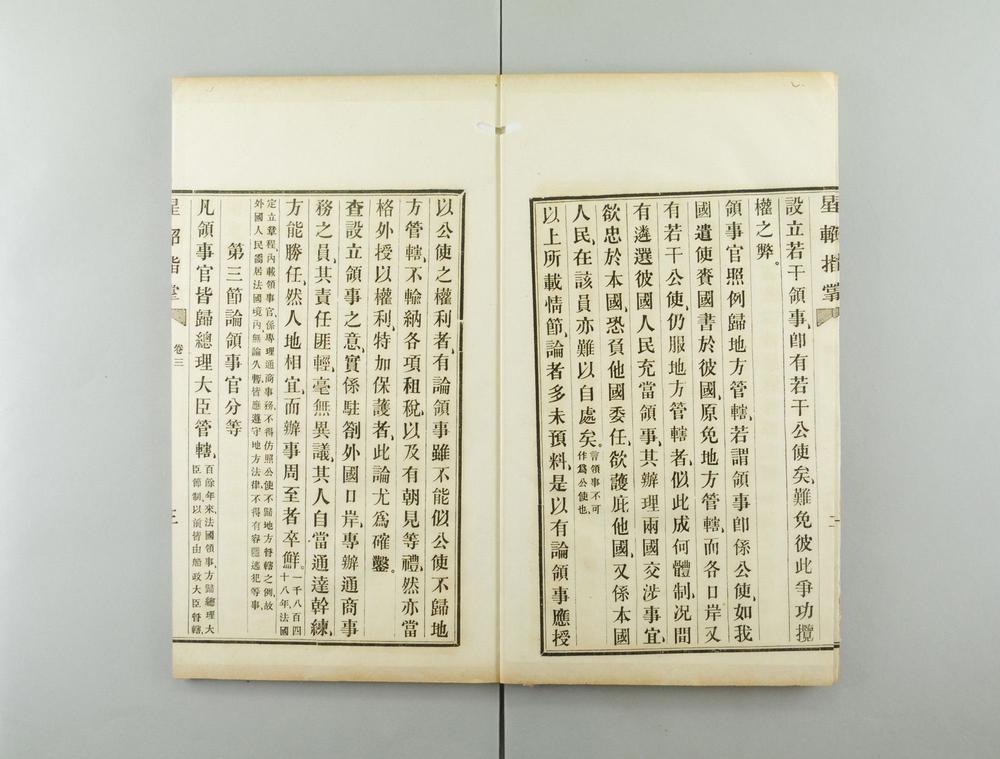 星軺指掌
二
設立若干領事、卽有若干公使矣、難免彼此爭功攬
權之弊。
領事官照例歸地方管轄、若謂領事卽係公使、如我
國遣使賫國書於彼國、原免地方管轄、而各口岸又
有若干公使、仍服地方管轄者、似此成何體制、况間
有遴選彼國人民充當領事、其辦理兩國交涉事宜、
欲忠於本國、恐負他國委任、欲護庇他國、又係本國
人民、在該員亦難以自處矣。
曾領事不可
作爲公使也、
以上所載情節、論者多未預料、是以有論領事應授
以公使之權利者、有論領事雖不能似公使不歸地
方管轄、不輸納各項租稅、以及有朝見等禮、然亦當
格外授以權利、特加保護者、此論尤爲確鑿。
查設立領事之意、實係駐劄外國口岸、專辦通商事
務之員、其責任匪輕、毫無異議、其人自當通達幹練、
方能勝任、然人地相宜、而辦事周至者卒鮮。
一千八百四
十八年、法國
定立章程、內載領事官、係專理通商事務、不得仿照公使不歸地方督轄之例、故
外國人民僑居法國境內、無論久暫、皆應遵守地方法律、不得有容隱逃犯等事、
第三節論領事官分等
凡領事官皆歸總理大臣管轄、
百餘年來、法國領事、方歸總理大
臣節制、以前皆由船政大臣督轄、
星軺指掌
卷三
三